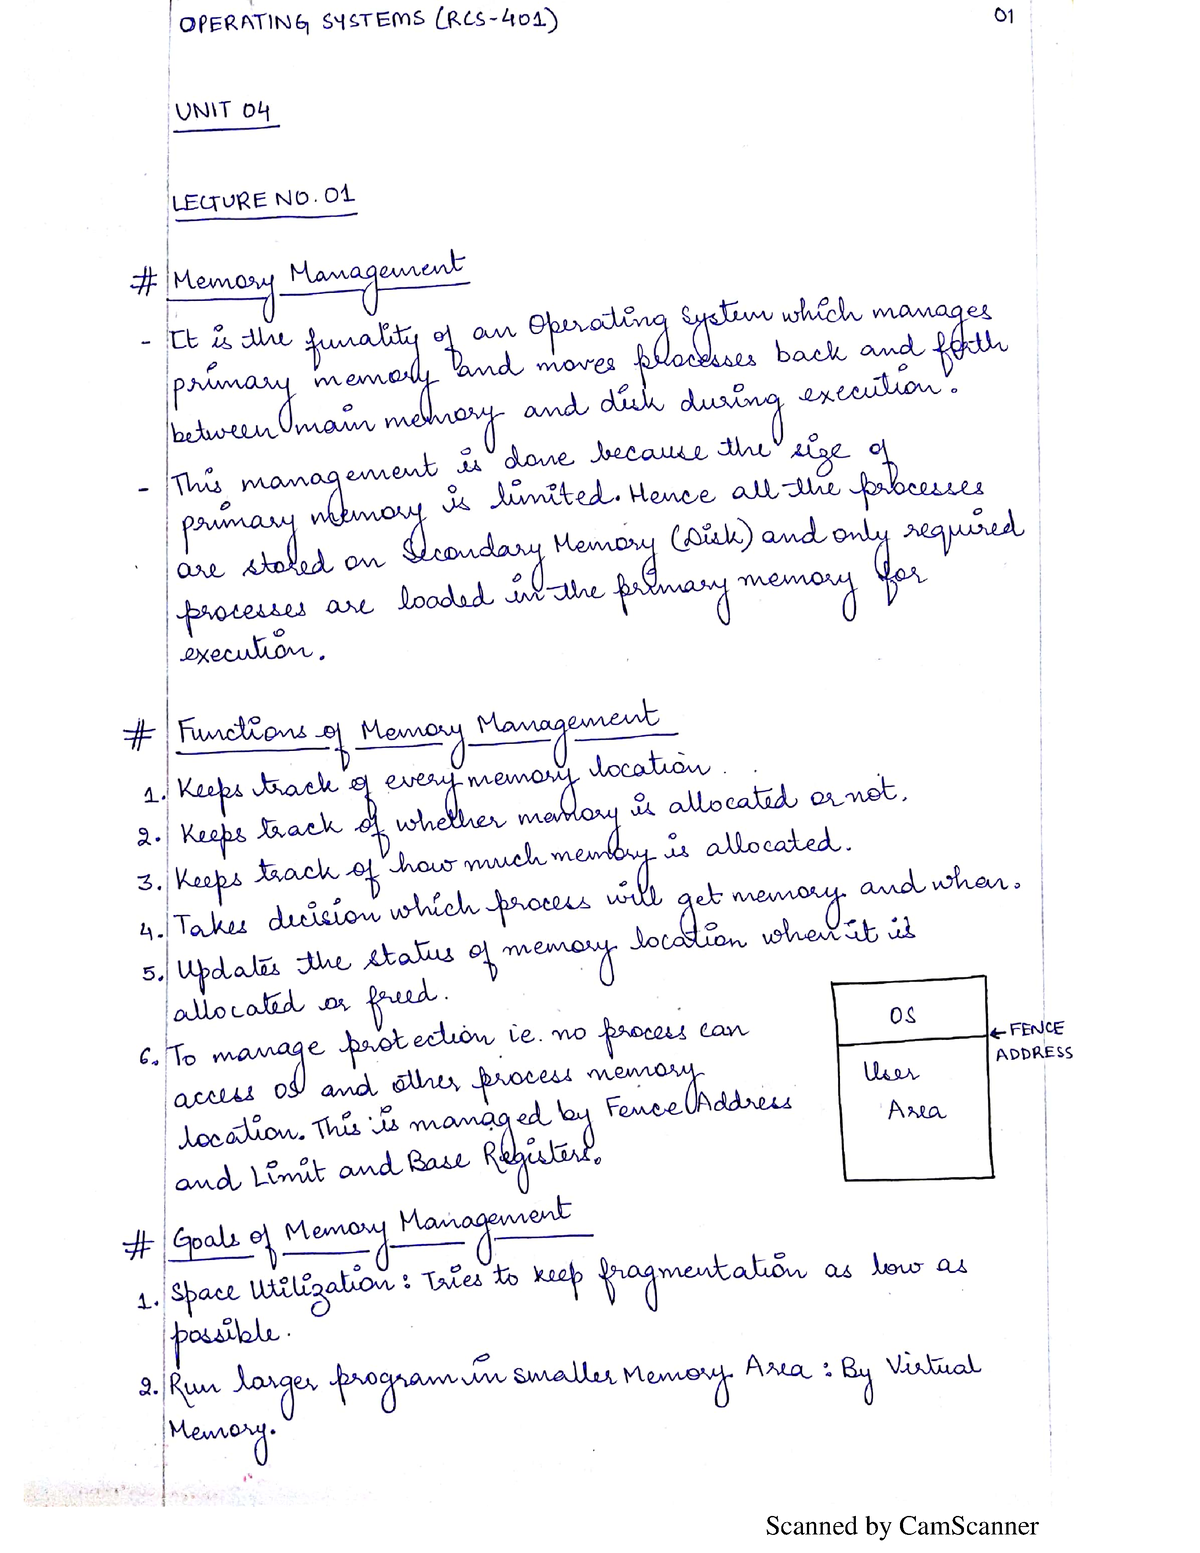 OPERATING SYSTEMS (RCS-401)
01
UNIT 04
LECTURE NO. 01
# Memory Management
- It is the funality of an Operating System which manages
primary memory and moves processes back and forth
between main memory and disk during execution.
- This management is done because the size of
primary memory is limited. Hence all the processes
are stored on Secondary Memory (Disk) and only required
processes are loaded in the primary memory for
execution.
# Functions of Memory Management
1. Keeps track of every memory location.
2. Keeps track of whether memory is allocated or not.
3. Keeps track of how much memory is allocated.
4. Takes decision which process will get memory and when.
5. Updates the status of memory location when it is
allocated or freed.
6. To manage protection ie. no process can
access OS and other process memory
location. This is managed by Fence Address
and Limit and Base Registers.
OS
← FENCE
ADDRESS
User
Area
# Goals of Memory Management
1. Space Utilization: Tries to keep fragmentation as low as
possible.
2. Run larger program in smaller Memory Area: By Virtual
Memory.
Scanned by CamScanner